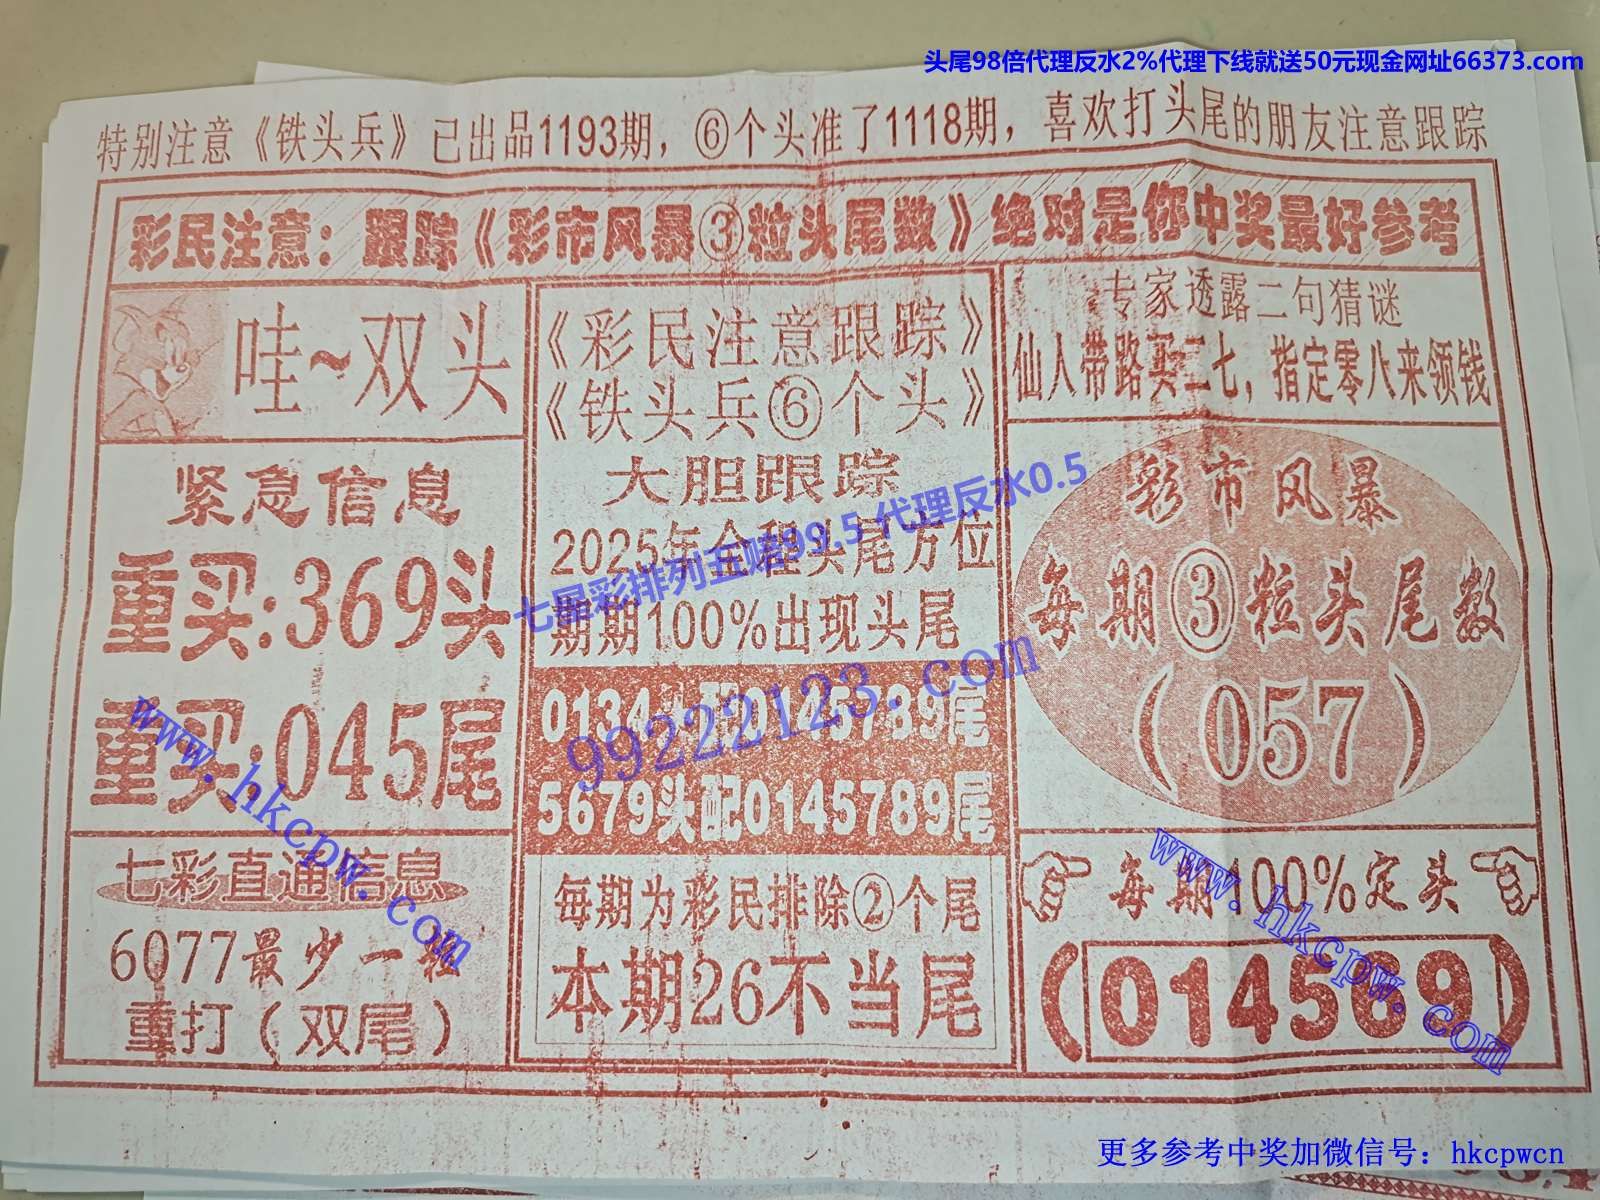 头尾98倍代理反水2%代理下线就送50元现金网址66373.com
特别注意《铁头兵》已出品1193期，⑥个头准了1118期，喜欢打头尾的朋友注意跟踪
彩民注意：跟踪《彩市风暴③粒头尾数》绝对是你中奖最好参考
哇~双头
紧急信息
重买:369头
重买:045尾
七彩直通信息
6077最少一粒
重打（双尾）
《彩民注意跟踪》
《铁头兵⑥个头》
大胆跟踪
2025年全程头尾方位
期期100%出现头尾
0134头配0145789尾
5679头配0145789尾
每期为彩民排除②个尾
本期26不当尾
专家透露二句猜谜
仙人带路买二七，指定零八来领钱
彩市风暴
每期③粒头尾数
（057）
每期100%定头
（014569）
七星彩排列五赔99.5 代理反水0.5
99222123.com
www.hkcpw.com
www.hkcpw.com
更多参考中奖加微信号：hkcpwcn